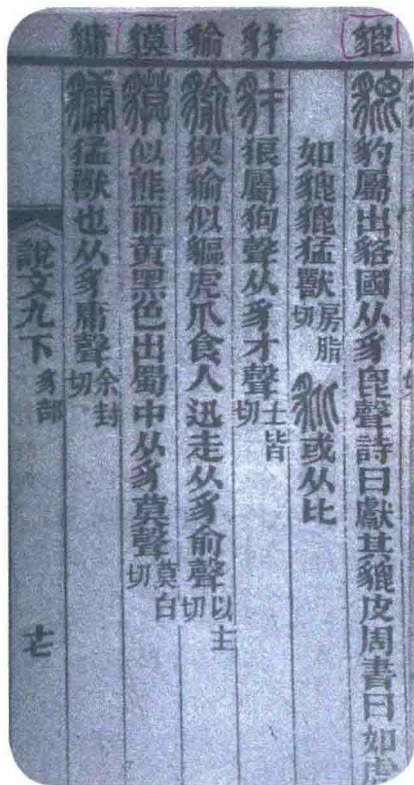 貔 豹屬出貉國从豸毘聲詩曰獻其貔皮周書曰如虎
如貔貔猛獸房脂切 或从比
豺 狼屬狗聲从豸才聲士皆切
貐 猰貐似貙虎爪食人迅走从豸俞聲以主切
貘 似熊而黃黑色出蜀中从豸莫聲莫白切
猛獸也从豸庸聲余封切
說文九下 豸部 十七